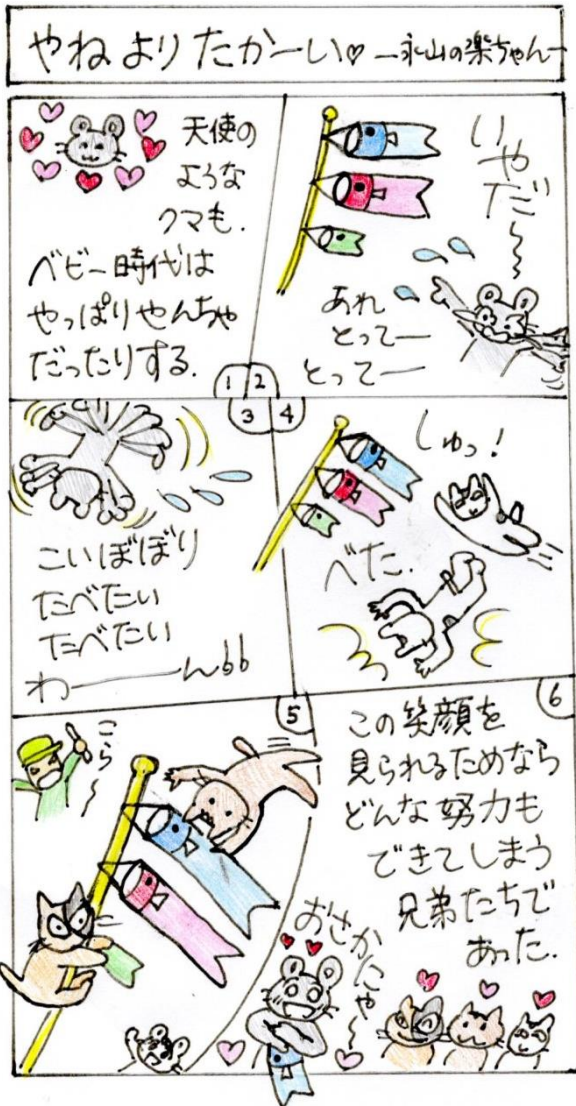 やねよりたかーい♡ ー永山の楽ちんー
天使の
ような
クマも.
ベビー時代は
やっぱりやんちゃ
だったりする.
1
2
いやだ〜〜
あれ
とってー
とってー
3
こいぼぼり
たべたい
たべたい
わーーーん66
4
しゅっ!
べた.
5
こら〜
6
この笑顔を
見られるためなら
どんな努力も
できてしまう
兄弟たちで
あった.
おさかにゃ〜